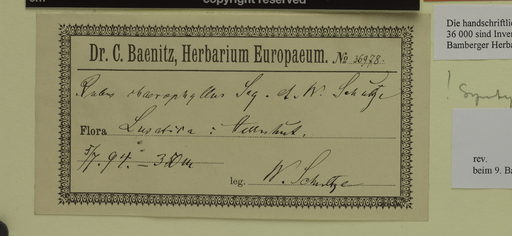 copyright reserved
Dr. C. Baenitz, Herbarium Europaeum. No 36978.
Rubus chaerophyllus Sag. et W. Schultze
Flora Lusatica: Herrnhut.
3/7. 94. — 350 m
leg. W. Schultze
Die handschriftlic
36 000 sind Inver
Bamberger Herba
!
rev.
beim 9. Ba